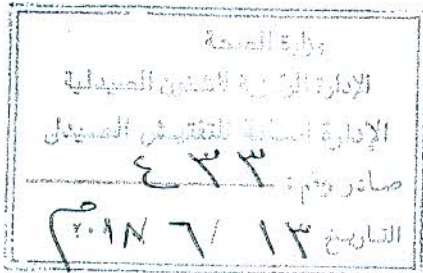 وزارة الصحة
الإدارة المركزية للشئون الصيدلية
الإدارة العامة للتفتيش الصيدلى
صادر رقم : ٤٣٣
التاريخ ١٣ / ٦ /